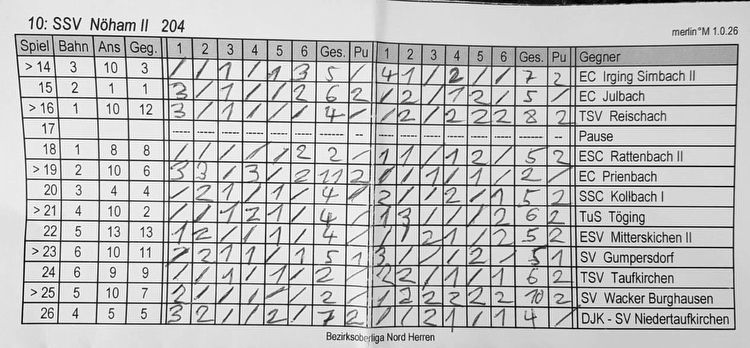 10: SSV Nöham II 204
merlin°M 1.0.26
Spiel Bahn Ans Geg. 1 2 3 4 5 6 Ges. Pu 1 2 3 4 5 6 Ges. Pu Gegner
> 14 3 10 3 / / 1 / 1 3 5 / 4 1 / 2 / / 7 2 EC Irging Simbach II
15 2 1 1 3 / 1 / / 2 6 2 / 2 / 1 2 / 5 / EC Julbach
> 16 1 10 12 3 / 1 / / / 4 / / 2 / 2 2 2 8 2 TSV Reischach
17 ----- ----- ----- ----- ----- ----- ----- -- ----- ----- ----- ----- ----- ----- ----- -- Pause
18 1 8 8 / / / / / 2 2 / 1 1 / 1 2 / 5 2 ESC Rattenbach II
> 19 2 10 6 3 3 / 3 / 2 11 2 / / 1 / 1 / 2 / EC Prienbach
20 3 4 4 / 2 1 / 1 / 4 / 2 / / 2 / 1 5 2 SSC Kollbach I
> 21 4 10 2 / / 1 2 1 / 4 / 1 3 / / / 2 6 2 TuS Töging
22 5 13 13 1 2 / / 1 / 4 / / / 2 1 / 2 5 2 ESV Mitterskichen II
> 23 6 10 11 / 2 1 1 / 1 5 1 3 / / / 2 / 5 1 SV Gumpersdorf
24 6 9 9 / / 1 / 1 / 2 / 2 2 / 1 / 1 6 2 TSV Taufkirchen
> 25 5 10 7 2 / / / / / 2 / 1 2 2 2 2 1 10 2 SV Wacker Burghausen
26 4 5 5 3 2 / / 2 / 7 2 / / 2 1 / 1 4 / DJK - SV Niedertaufkirchen
Bezirksoberliga Nord Herren